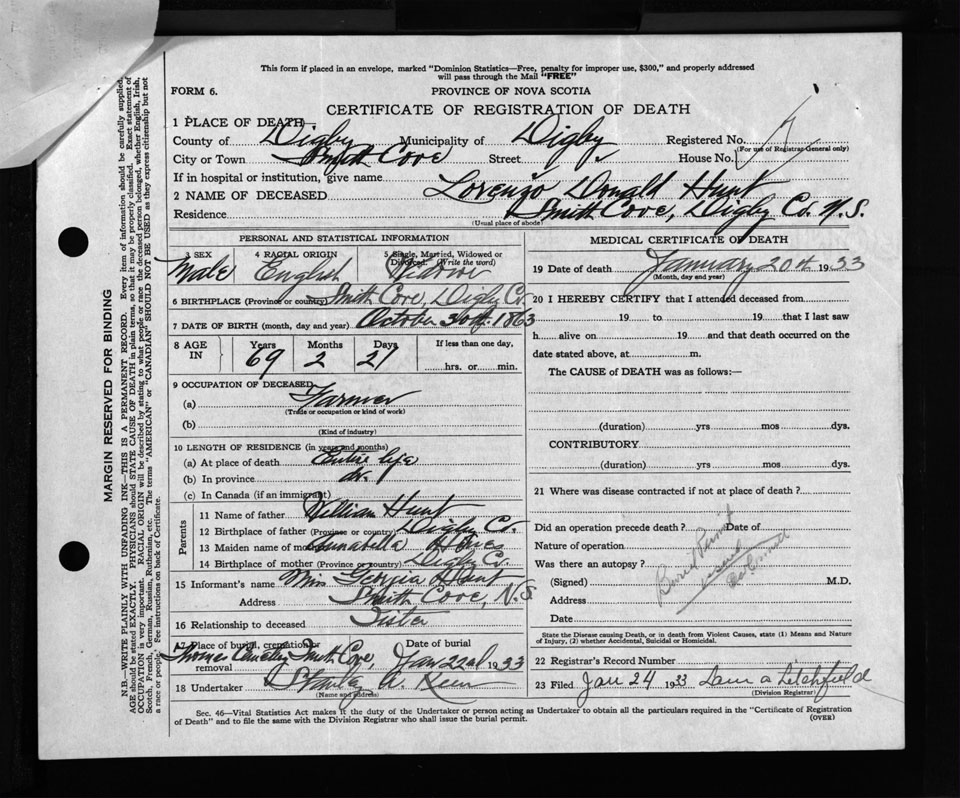 This form if placed in an envelope, marked "Dominion Statistics—Free, penalty for improper use, $300," and properly addressed
will pass through the Mail "FREE"
FORM 6.
PROVINCE OF NOVA SCOTIA
CERTIFICATE OF REGISTRATION OF DEATH
1 PLACE OF DEATH—
County of Digby Municipality of Digby Registered No.
(For use of Registrar General only)
City or Town Smith Cove Street House No.
If in hospital or institution, give name
2 NAME OF DECEASED Lorenzo Donald Hunt
Residence Smith Cove, Digby Co. N.S.
(Usual place of abode)
PERSONAL AND STATISTICAL INFORMATION
3 SEX 4 RACIAL ORIGIN 5 Single, Married, Widowed or
Divorced. (Write the word)
Male English Widower
6 BIRTHPLACE (Province or country) Smith Cove, Digby Co.
7 DATE OF BIRTH (month, day and year) October 30th 1863
8 AGE IN Years Months Days If less than one day,
69 2 21 hrs. or min.
9 OCCUPATION OF DECEASED
(a) Farmer
(Trade or occupation or kind of work)
(b)
(Kind of industry)
10 LENGTH OF RESIDENCE (in years and months)
(a) At place of death Entire life
(b) In province do.
(c) In Canada (if an immigrant)
Parents
11 Name of father William Hunt
12 Birthplace of father (Province or country) Digby Co.
13 Maiden name of mother Annabella
14 Birthplace of mother (Province or country) Digby Co.
15 Informant's name Mrs Georgia Hunt
Address Smith Cove, N.S
16 Relationship to deceased Sister
17 Place of burial, cremation or removal Date of burial
Thomas Cemetery Smith Cove, Jan 22nd 1933
18 Undertaker Stanley A.
(Name and address)
MEDICAL CERTIFICATE OF DEATH
19 Date of death January 20th 1933
(Month, day and year)
20 I HEREBY CERTIFY that I attended deceased from
19 to 19 that I last saw
h alive on 19 and that death occurred on the
date stated above, at m.
The CAUSE of DEATH was as follows:—
(duration) yrs mos dys.
CONTRIBUTORY
(duration) yrs mos dys.
21 Where was disease contracted if not at place of death?
Did an operation precede death? Date of
Nature of operation
Was there an autopsy?
Burial Permit
issued
(Signed) M.D.
Address
Date
State the Disease causing Death, or in death from Violent Causes, state (1) Means and Nature
of Injury, (2) whether Accidental, Suicidal or Homicidal.
22 Registrar's Record Number
23 Filed Jan 24 1933 Laura A Letchfield
(Division Registrar)
Sec. 46—Vital Statistics Act makes it the duty of the Undertaker or person acting as Undertaker to obtain all the particulars required in the "Certificate of Registration
of Death" and to file the same with the Division Registrar who shall issue the burial permit.
(OVER)
MARGIN RESERVED FOR BINDING
N.B.—WRITE PLAINLY WITH UNFADING INK—THIS IS A PERMANENT RECORD. Every item of information should be carefully supplied.
AGE should be stated EXACTLY. PHYSICIANS should STATE CAUSE OF DEATH in plain terms, so that it may be properly classified. Exact statement of
OCCUPATION is very important. RACIAL ORIGIN will be described by stating to what people or race the deceased person belonged, whether English, Irish,
Scotch, French, German, Russian, Ruthenian, etc. The terms "AMERICAN" or "CANADIAN" SHOULD NOT BE USED as they express citizenship but not
a race or people. See instructions on back of Certificate.